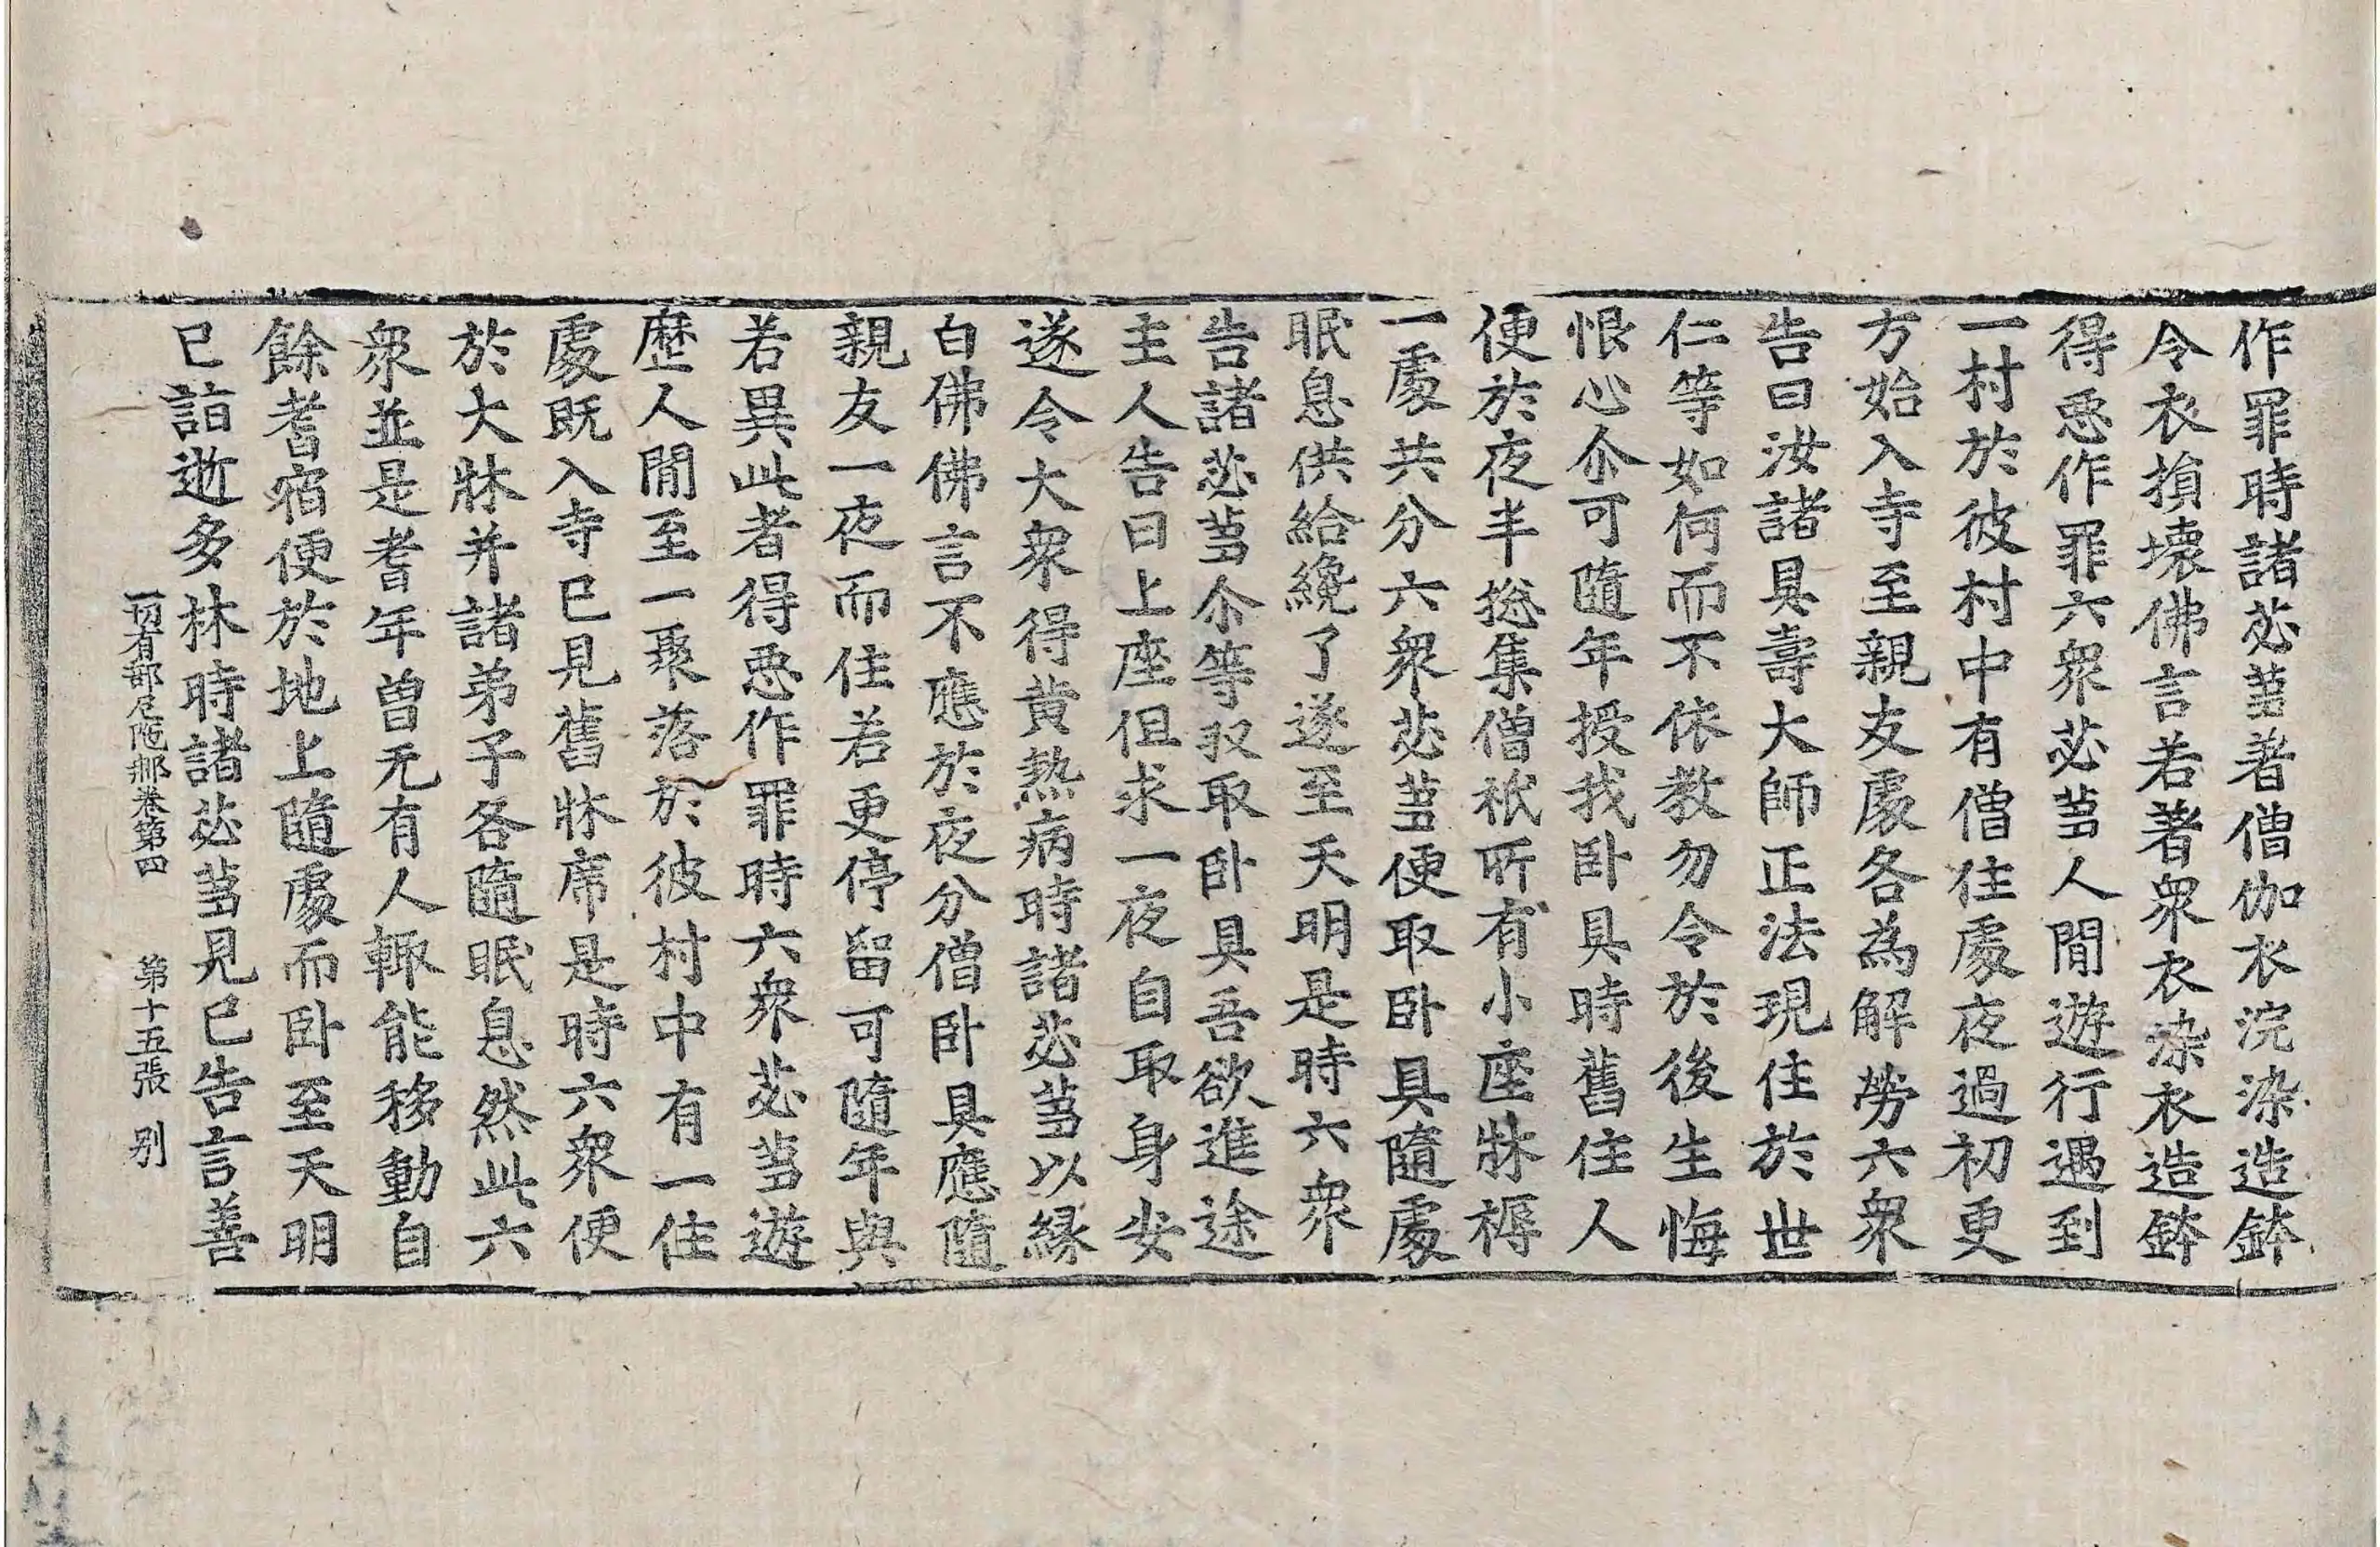 作罪時諸苾蒭著僧伽衣浣染造鉢
令衣損壞佛言若著衆衣染衣造鉢
得惡作罪六衆苾蒭人閒遊行遇到
一村於彼村中有僧住處夜過初更
方始入寺至親友處各為解勞六衆
告曰汝諸具壽大師正法現住於世
仁等如何而不依教勿令於後生悔
恨心尒可隨年授我卧具時舊住人
便於夜半捴集僧祇所有小座牀褥
一處共分六衆苾蒭便取卧具隨處
眠息供給纔了遂至天明是時六衆
告諸苾蒭尒等収取卧具吾欲進途
主人告曰上座但求一夜自取身安
遂令大衆得黄熱病時諸苾蒭以緣
白佛佛言不應於夜分僧卧具應隨
親友一夜而住若更停留可隨年與
若異此者得惡作罪時六衆苾蒭遊
歷人閒至一聚落於彼村中有一住
處既入寺已見舊牀席是時六衆便
於大牀并諸弟子各隨眠息然此六
衆並是耆年曾无有人輙能移動自
餘耆宿便於地上隨處而卧至天明
已詣逝多林時諸苾蒭見已告言善
一切有部尼陁那卷第四　第十五張　别